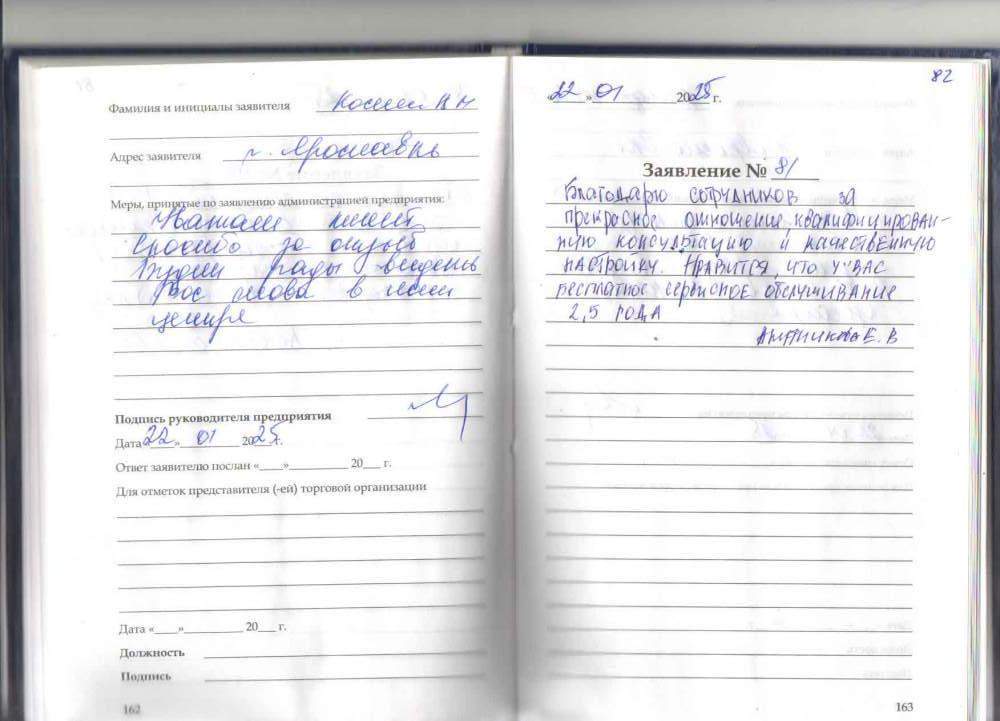 Фамилия и инициалы заявителя
Адрес заявителя г. Ярославль
Меры, принятые по заявлению администрацией предприятия:
Спасибо за отзыв
Будем рады видеть
Вас снова в
центре
Подпись руководителя предприятия
Дата 22 » 01 2025 г.
Ответ заявителю послан «____»__________ 20___ г.
Для отметок представителя (-ей) торговой организации
Дата «____»__________ 20___ г.
Должность
Подпись
162
82
«22 » 01 2025 г.
Заявление № 81
Благодарю сотрудников за
прекрасное отношение, квалифицирован-
ную консультацию и качественную
настройку. Нравится, что у вас
бесплатное сервисное обслуживание
2,5 года
Е. В
163